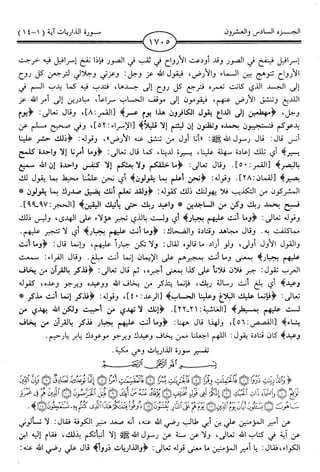 الجزء السادس والعشرون
١٧٠٥
سورة الذاريات آية (١-١٤)
إسرافيل فينفخ في الصور وقد أودعت الأرواح في ثقب في الصور فإذا نفخ إسرافيل فيه خرجت
الأرواح تتوهج بين السماء والأرض، فيقول الله عز وجل: وعزتي وجلالي لترجعن كل روح
إلى الجسد الذي كانت تعمره فترجع كل روح إلى جسدها، فتدب فيه كما يدب السم في
اللديغ وتنشق الأرض عنهم، فيقومون إلى موقف الحساب سراعاً، مبادرين إلى أمر الله عز
وجل، ﴿مهطعين إلى الداع يقول الكافرون هذا يوم عسر﴾ [القمر: ٨]، وقال تعالى: ﴿يوم
يدعوكم فتستجيبون بحمده وتظنون إن لبثتم إلا قليلاً﴾ [الإسراء: ٥٢]، وفي صحيح مسلم عن
أنس قال: قال رسول الله ﷺ: «أنا أول من تنشق عنه الأرض»، وقوله: ﴿ذلك حشر علينا
يسير﴾ أي تلك إعادة سهلة علينا، يسيرة لدينا، كما قال تعالى: ﴿وما أمرنا إلا واحدة كلمح
بالبصر﴾ [القمر: ٥٠]. وقال تعالى: ﴿ما خلقكم ولا بعثكم إلا كنفس واحدة إن الله سميع
بصير﴾ [لقمان: ٢٨]. وقوله: ﴿نحن أعلم بما يقولون﴾ أي نحن علمنا محيط بما يقول لك
المشركون من التكذيب فلا يهولنك ذلك كقوله: ﴿ولقد نعلم أنك يضيق صدرك بما يقولون *
فسبح بحمد ربك وكن من الساجدين * واعبد ربك حتى يأتيك اليقين﴾ [الحجر: ٩٧ـ٩٩].
وقوله تعالى: ﴿وما أنت عليهم بجبار﴾ أي ولست بالذي تجبر هؤلاء على الهدى، وليس ذلك
مما كلفت به. وقال مجاهد وقتادة والضحاك: ﴿وما أنت عليهم بجبار﴾ أي لا تتجبر عليهم.
والقول الأول أولى، ولو أراد ما قالوه لقال: ولا تكن جباراً عليهم، وإنما قال: ﴿وما أنت
عليهم بجبار﴾ بمعنى وما أنت بمجبرهم على الإيمان إنما أنت مبلغ. وقال الفراء: سمعت
العرب تقول: جبر فلان فلاناً على كذا بمعنى أجبره، ثم قال تعالى: ﴿فذكر بالقرآن من يخاف
وعيد﴾ أي بلغ أنت رسالة ربك، فإنما يتذكر من يخاف الله ووعيده ويرجو وعده، كقوله
تعالى: ﴿فإنما عليك البلاغ وعلينا الحساب﴾ [الرعد: ٤٠]، وقوله: ﴿فذكر إنما أنت مذكر *
لست عليهم بمسيطر﴾ [الغاشية: ٢١ـ٢٢]. ﴿إنك لا تهدي من أحببت ولكن الله يهدي من
يشاء﴾ [القصص: ٥٦]، ولهذا قال ههنا: ﴿وما أنت عليهم بجبار فذكر بالقرآن من يخاف
وعيد﴾ كان قتادة يقول: اللهم اجعلنا ممن يخاف وعيدك ويرجو موعودك يابار يارحيم.
تفسير سورة الذاريات وهي مكية.
عن أمير المؤمنين علي بن أبي طالب رضي الله عنه، أنه صعد منبر الكوفة فقال: لا تسألوني
عن آية في كتاب الله تعالى، ولا عن سنة عن رسول الله ﷺ إلا أنبأتكم بذلك، فقام إليه ابن
الكواء، فقال: يا أمير المؤمنين ما معنى قوله تعالى: ﴿والذاريات ذرواً﴾ قال علي رضي الله عنه: